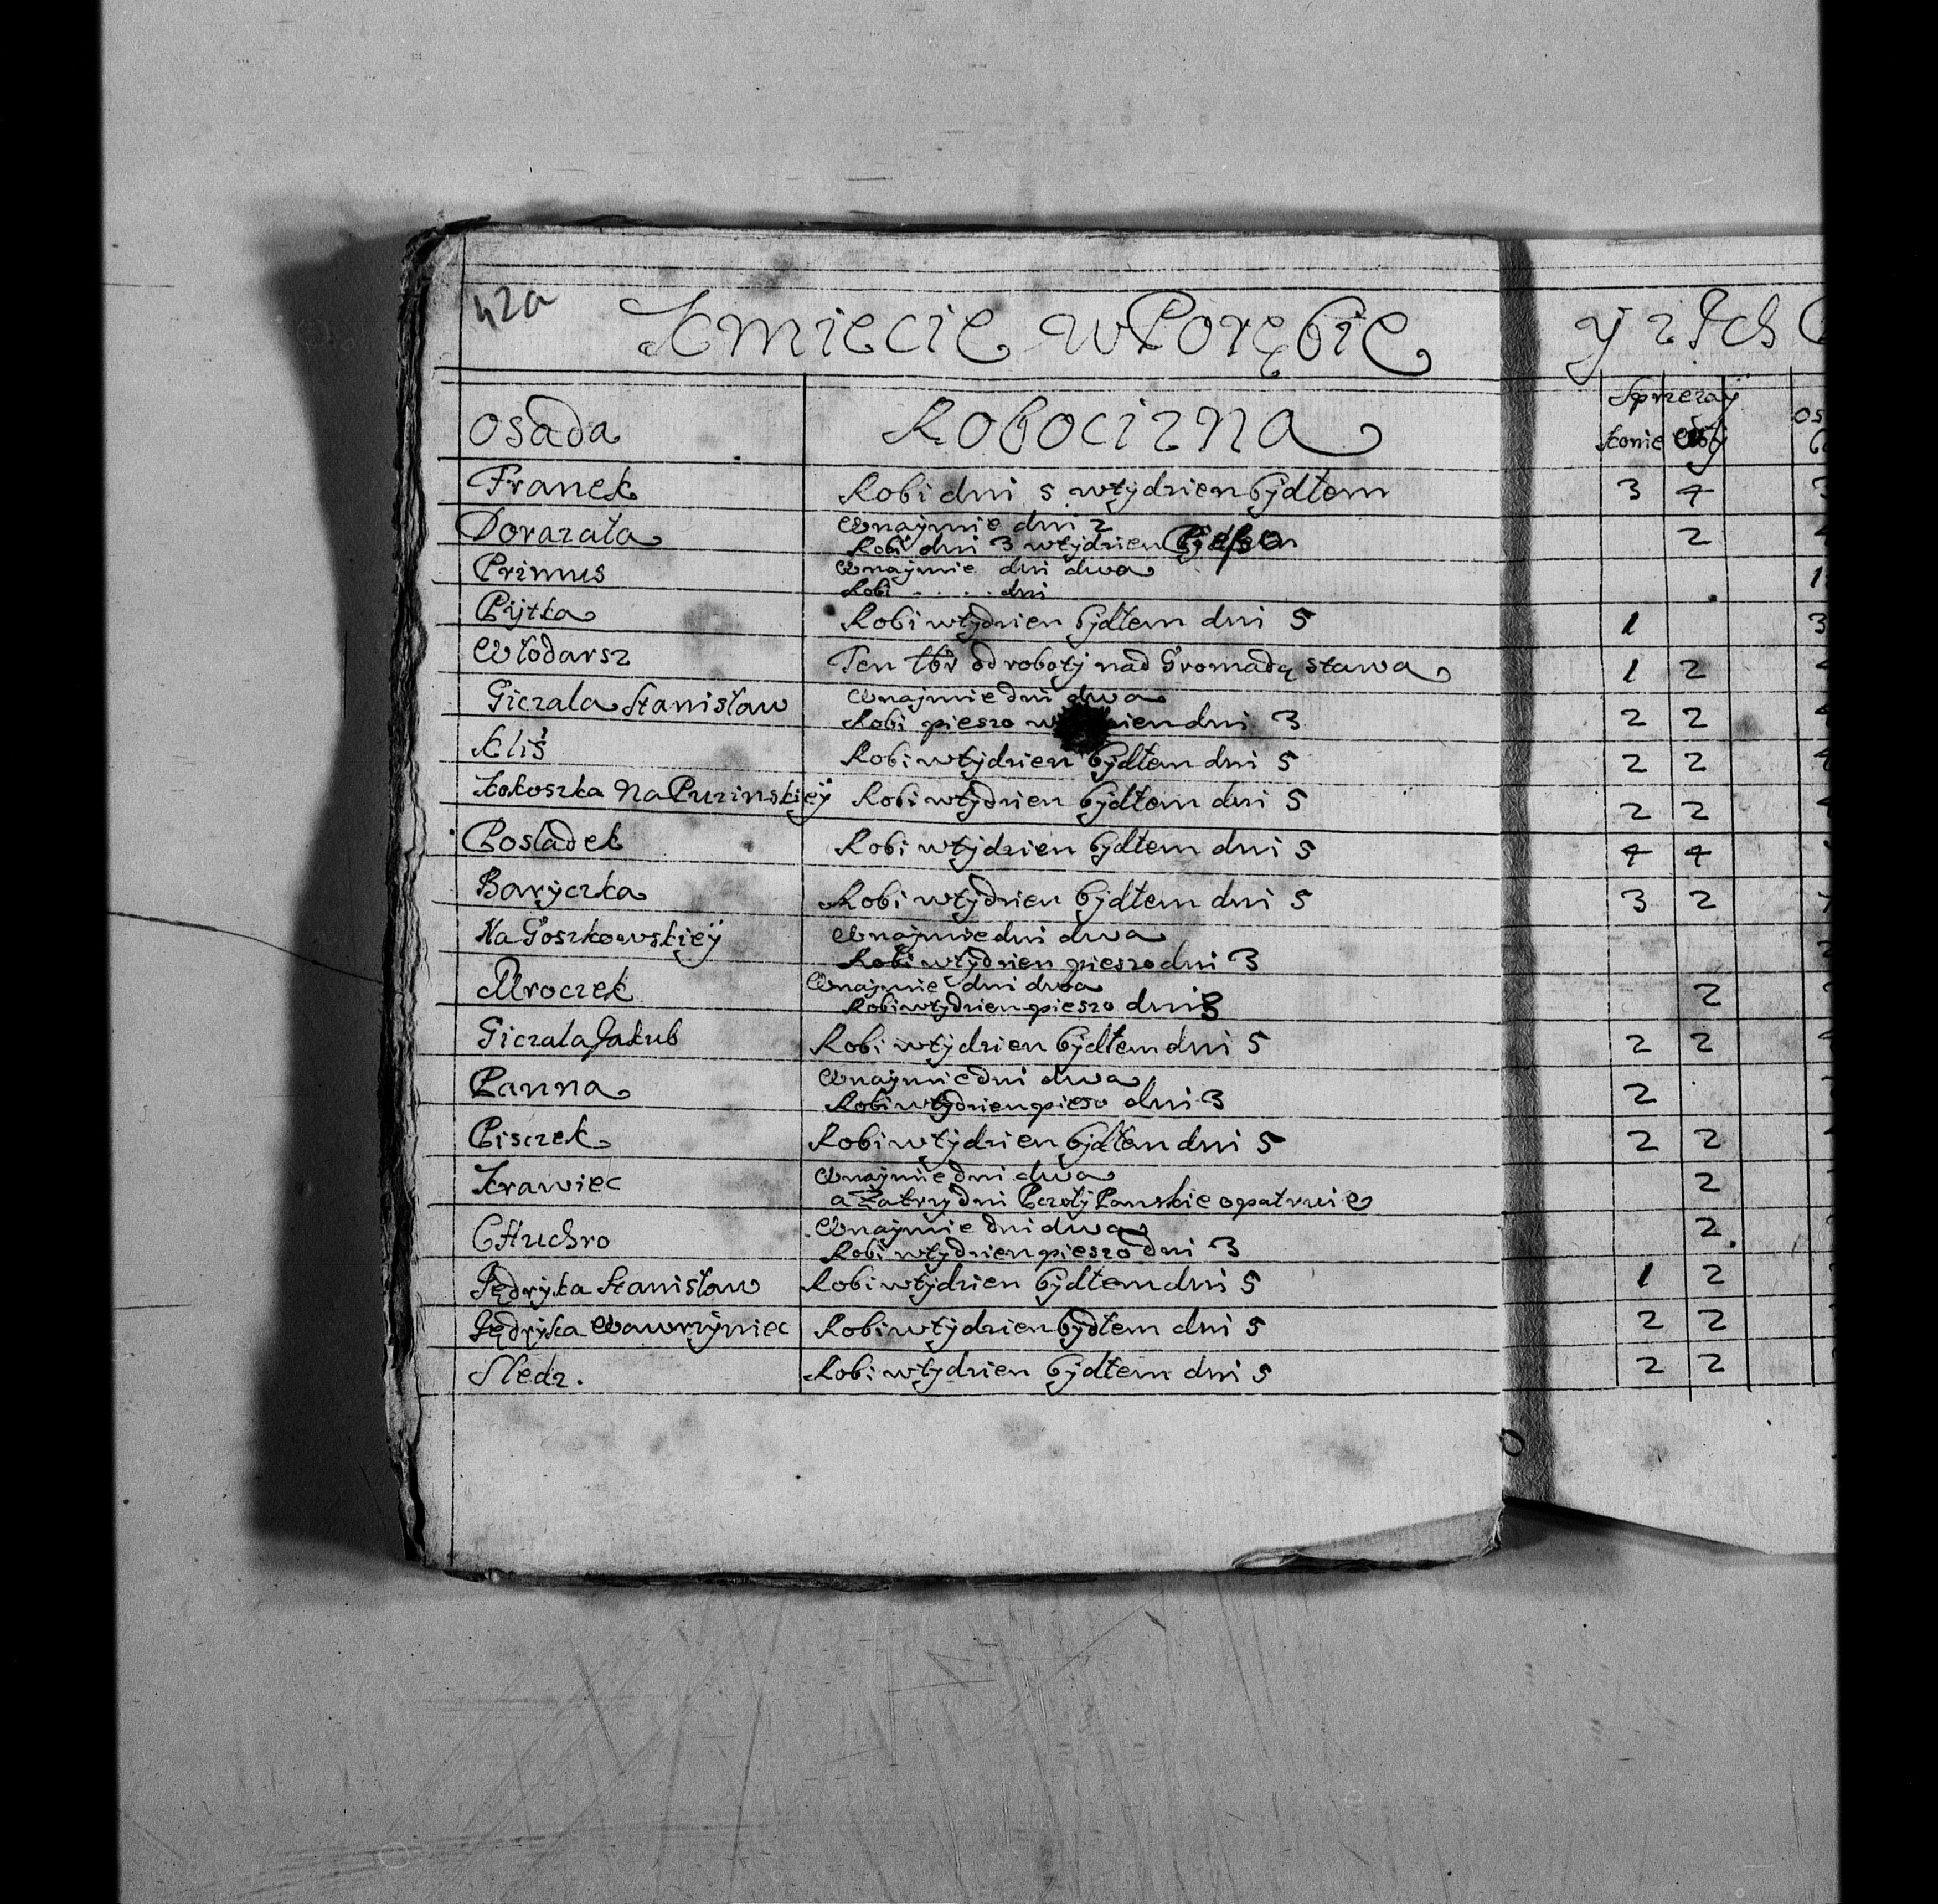 42a
Kmiecie w Porębie y z Ich
Sprzezaÿ
Osada Robocizna konie woły
Franek Robi dni 5 wtÿdzien bÿdłem 3 4
Wnaÿmie dni 2
Dorazała Robi dni 3 wtÿdzien 2
Primus Wnaÿmie dni dwa
Robi . . . . dni
Pÿtka Robi wtÿdzien bÿdłem dni 5 1 3
Włodarsz Ten tÿr od robotÿ nad Gromadą stawa 1 2
Giczala Stanisław Wnaÿmie dni dwa
Robi pieszo dni 3 2 2
Kliś Robi wtÿdzien bÿdłem dni 5 2 2
Kokoszka Na Puzinskieÿ Robi wtÿdzien bÿdłem dni 5 2 2
Posładek Robi wtÿdzien bÿdłem dni 5 4 4
Barÿczka Robi wtÿdzien bÿdłem dni 5 3 2
Na Goszkowskieÿ Wnaÿmie dni dwa
Robi wtÿdzien pieszo dni 3
Mroczek Wnaÿmie dni dwa
Robi wtÿdzien pieszo dni 3 2
Giczala Jakub Robi wtÿdzien bÿdłem dni 5 2 2
Panna Wnaÿmie dni dwa
Robi wtÿdzien pieso dni 3 2
Pisczek Robi wtÿdzien bÿdłem dni 5 2 2
Krawiec Wnaÿmie dni dwa
a Zatrzy dni Pczołÿ Panskie opatruie 2
Wnaÿmie dni dwa
Robi wtÿdzien pieszo dni 3 2
Jędrÿka Stanisław Robi wtÿdzien bÿdłem dni 5 1 2
Jędrÿka Wawrzÿniec Robi wtÿdzien bÿdłem dni 5 2 2
Sledz. Robi wtÿdzien bÿdłem dni 5 2 2